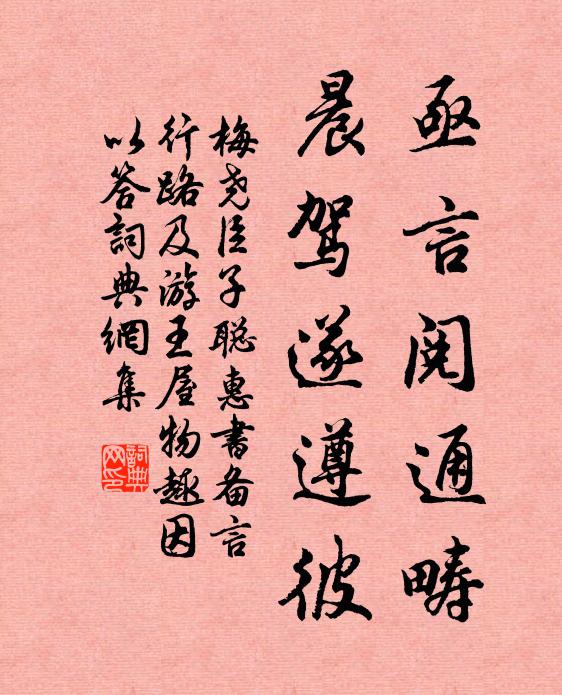 亟言阅通畴
晨驾遂遵彼
梅尧臣子聪惠书备言
行路及游王屋物趣因
以答詞典網集
詞典网印